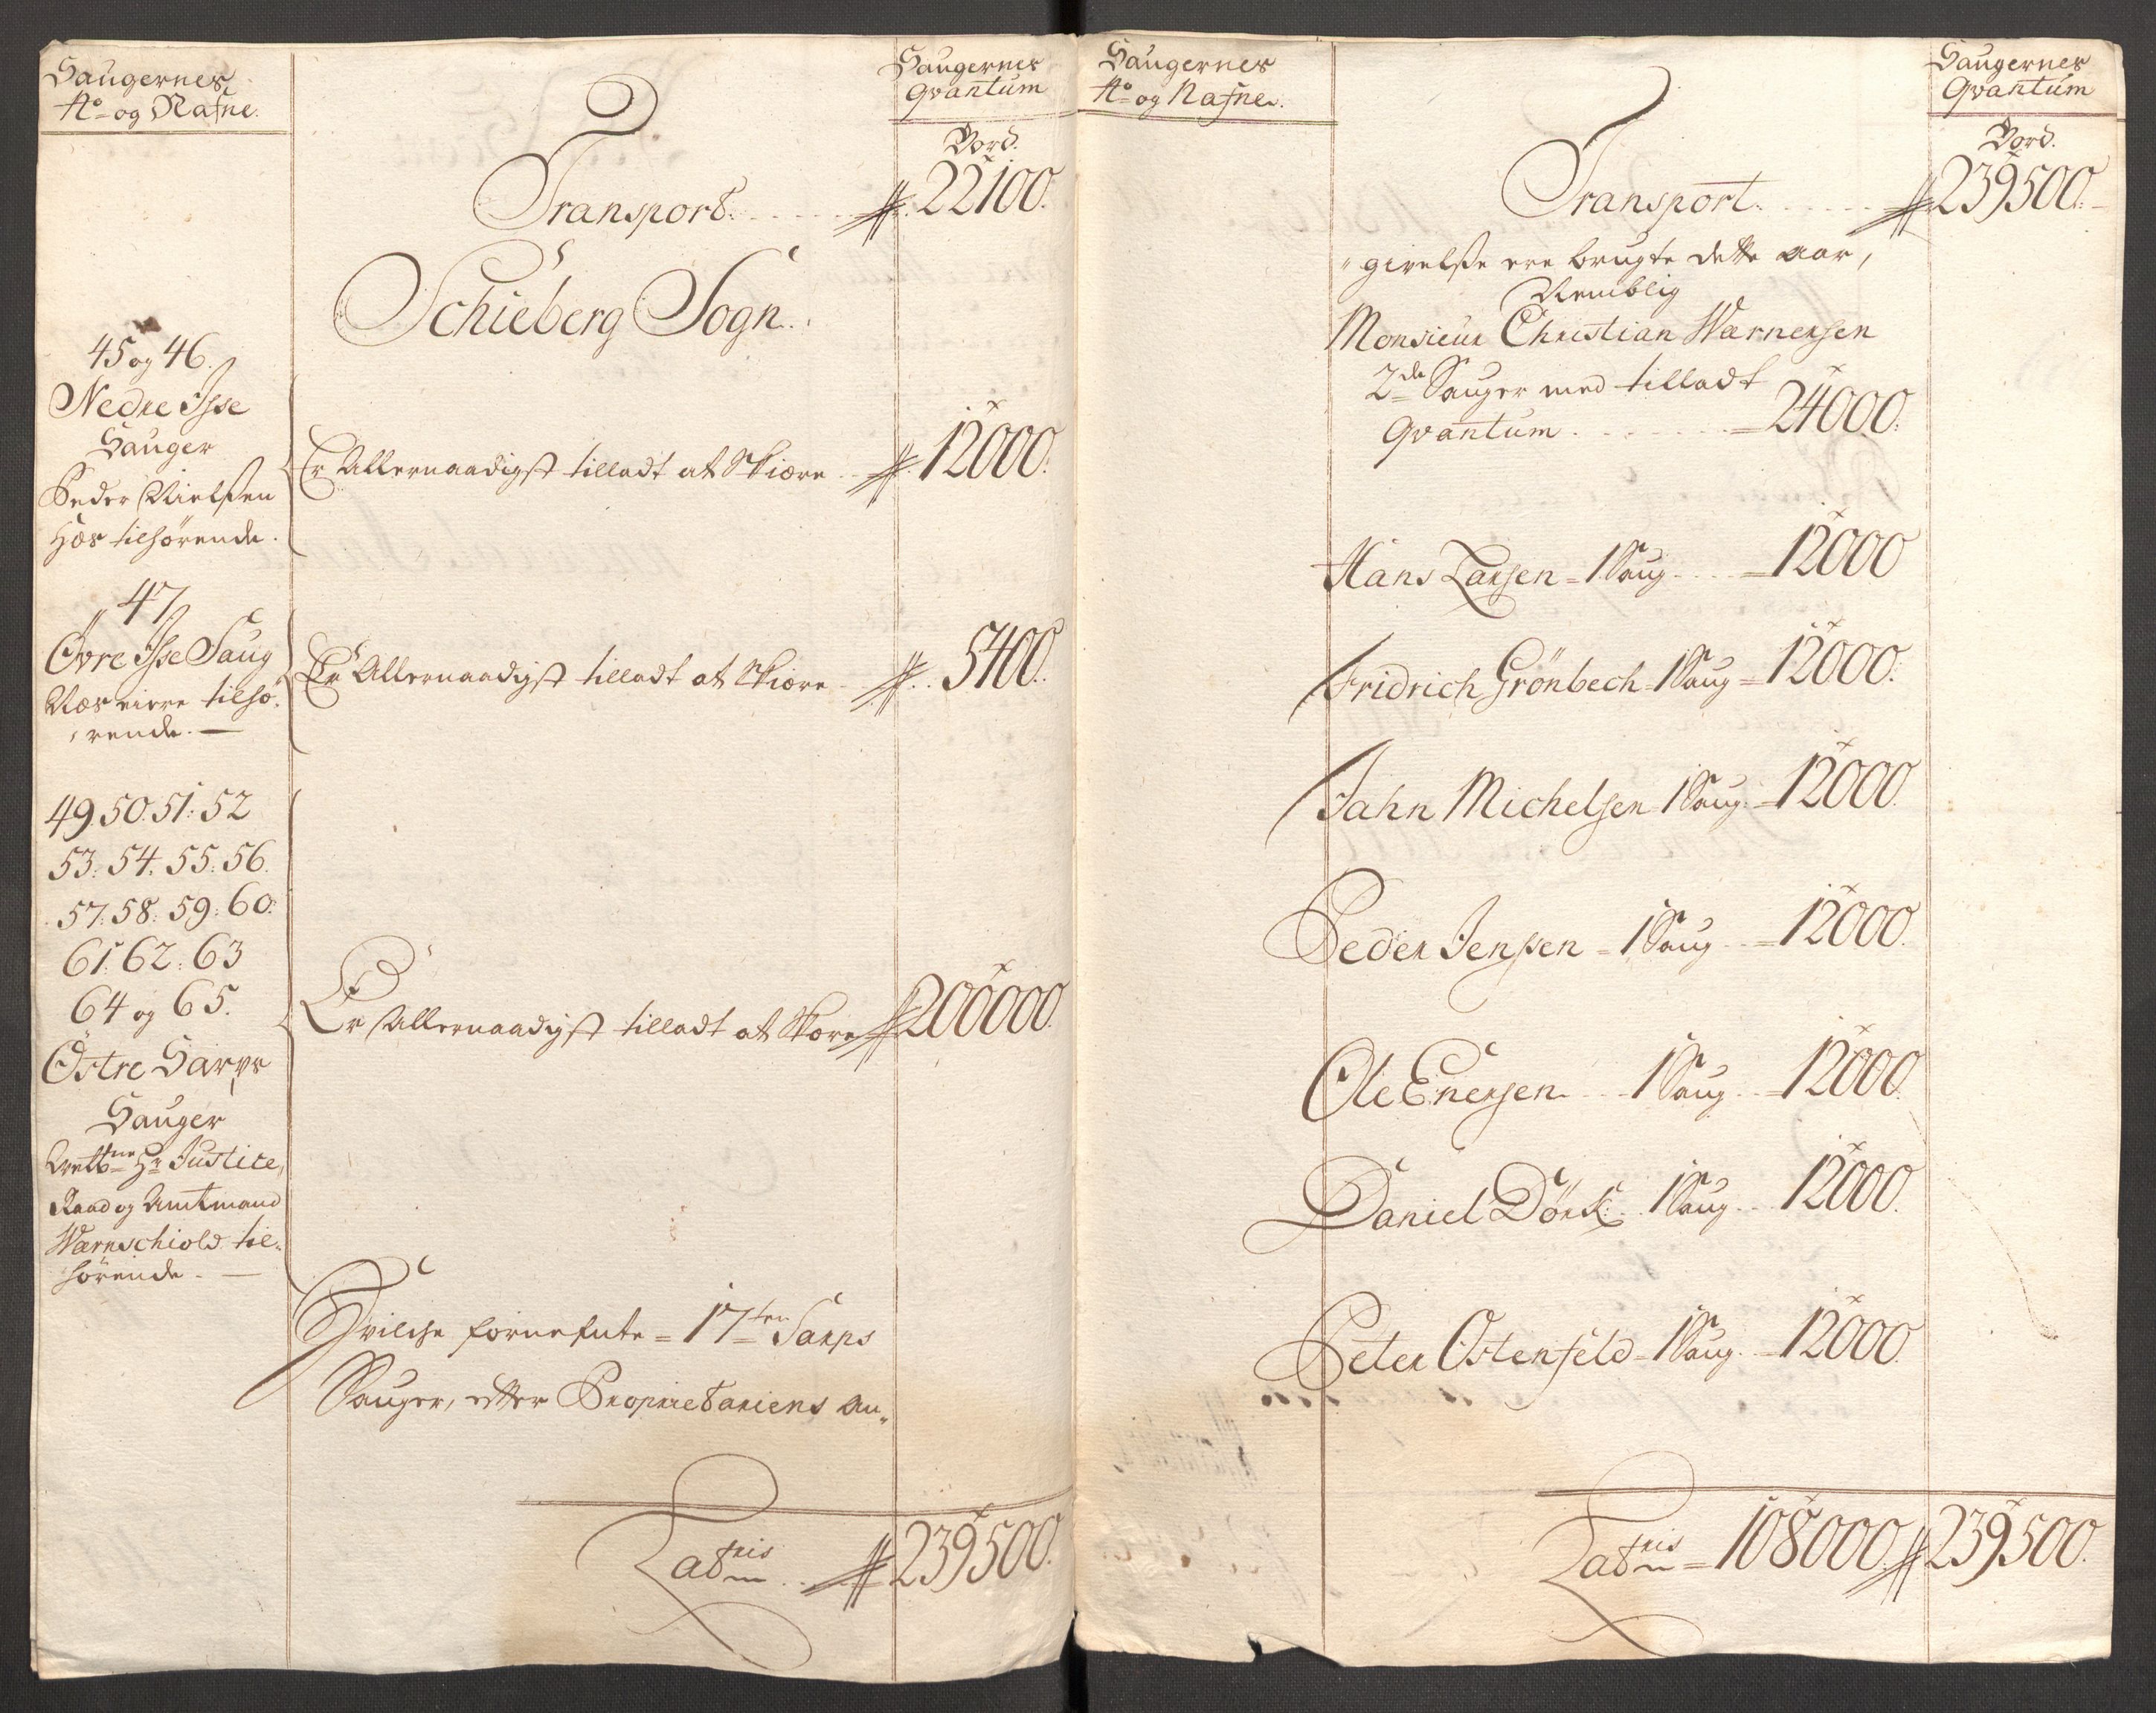 Saugernes
No og Nafne.
Saugernes
Qvantum
Bord.
Transport. # 22100.
Schieberg Sogn.
45 og 46.
Nedre Isse
Sauger
Peder Nielsen
Hos tilhörende.
Er Allernaadigst tilladt at Skiære # 12000.
47
Övre Isse Saug
tilhö-
rende.
Er Allernaadigst tilladt at Skiære # 5400.
49. 50. 51. 52
53. 54. 55. 56.
57. 58. 59. 60.
61. 62. 63
64 og 65.
Östre Sarps
Sauger
Hr Justice
Raad og Amtmand
Wernschiold til-
hörende.
Er Allernaadigst tilladt at Skære # 200000.
Hvilche fornefnte 17ten Sarps
Sauger, efter Proprietariens an-
Latris # 239500.
Saugernes
No og Nafne.
Saugernes
Qvantum
Bord.
Transport. # 239500.
givelse ere brugte dette aar,
Nemblig
Monsieur Christian Warnersen
2de Sauger med tilladt
Qvantum. = 24000.
Hans Larsen = 1 Saug = 12000
Fridrich Grönbech = 1 Saug = 12000.
Jahn Michelsen 1 Saug = 12000.
Peder Jensen = 1 Saug = 12000.
Ole Enersen 1 Saug = 12000.
Daniel Dörk 1 Saug 12000.
Peter Ostenfeld = 1 Saug = 12000.
Latris = 108000. # 239500.